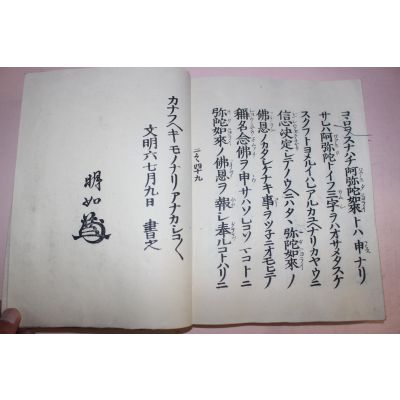 コヽロスナハチ阿弥陀如來トハ申ナリ
サレハ阿弥陀トイフ三字ヲハオサメタスケ
スクフトヨメルイハレアルカユヘナリカヤウニ
信心决定シテノウヘニハタヽ弥陀如來ノ
佛恩ノカタシケナキ事ヲツネニオモヒテ
稱名念佛ヲ申サハソレコソマコトニ
弥陀如來ノ佛恩ヲ報シ奉ルコトハリニ
二ノ四十九
カナフヘキモノナリアナカシコ〱
文明六七月九日 書之
明如